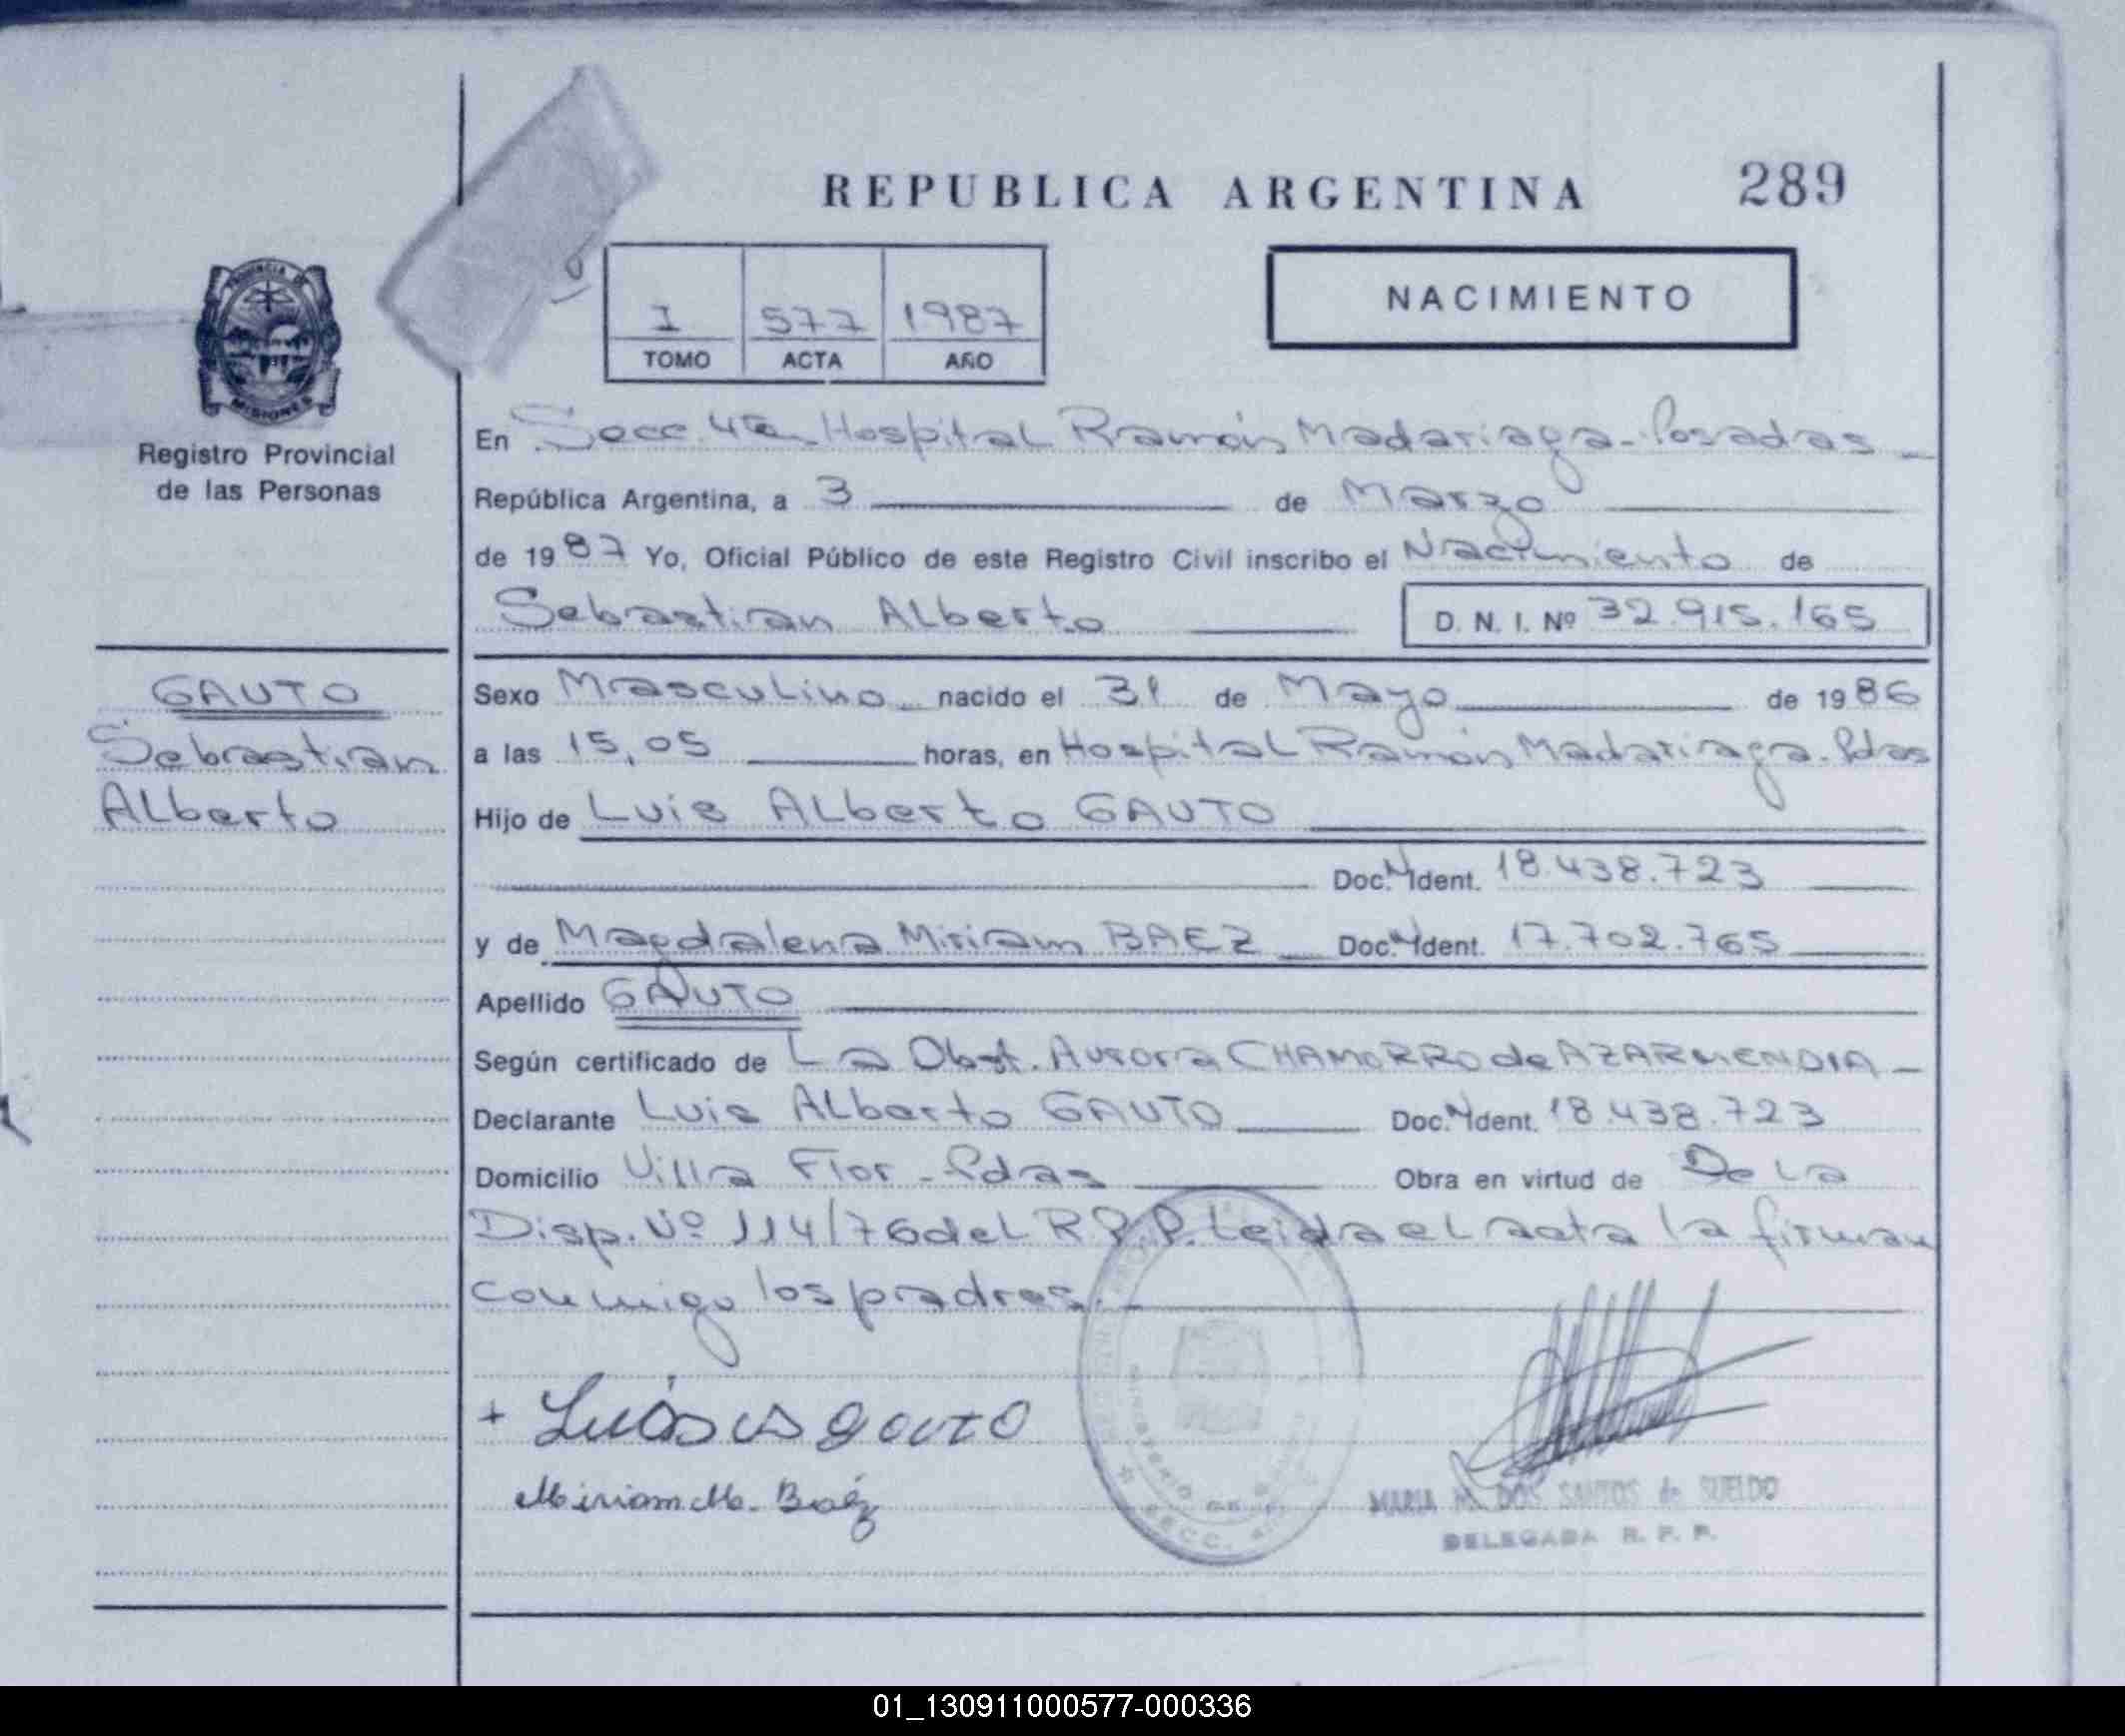 REPUBLICA ARGENTINA 289
I 577 1987
TOMO ACTA AÑO
NACIMIENTO
PROVINCIA DE
MISIONES
Registro Provincial
de las Personas
En Secc. 4ta Hospital Ramón Madariaga - Posadas
República Argentina, a 3 de Marzo
de 1987 Yo, Oficial Público de este Registro Civil inscribo el Nacimiento de
Sebastian Alberto D. N. I. Nº 32.915.165
GAUTO
Sebastian
Alberto
Sexo Masculino nacido el 31 de Mayo de 1986
a las 15,05 horas, en Hospital Ramón Madariaga. Pdas
Hijo de Luis Alberto GAUTO
Doc. N Ident. 18.438.723
y de Magdalena Miriam BAEZ Doc. N Ident. 17.702.765
Apellido GAUTO
Según certificado de La Obst. Aurora CHAMORRO de AZARMENDIA
Declarante Luis Alberto GAUTO Doc. N Ident. 18.438.723
Domicilio Villa Flor - Pdas Obra en virtud de De la
Disp. Nº 114/76 del R.P.P. Leida el acta la firman
conmigo los padres.
+ Luis gauto
Miriam M. Baéz
MARIA M. DOS SANTOS de SUELDO
DELEGADA R. P. P.
01_130911000577-000336